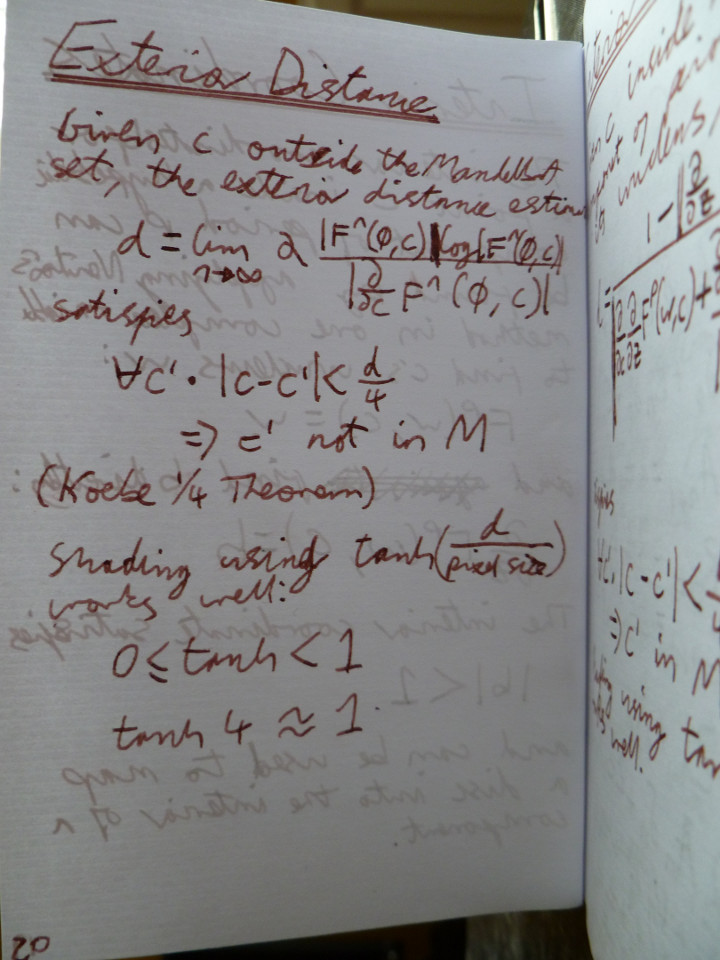 Exterior Distance
Given c outside the Mandelbrot
set, the exterior distance estim
d = lim n→∞ 2 |F^n(0,c)| log|F^n(0,c)| / |∂/∂c F^n(0,c)|
satisfies
∀c'. |c-c'| < d/4
=> c' not in M
(Koebe 1/4 Theorem)
Shading using tanh(d/pixel size)
works well:
0 ≤ tanh < 1
tanh 4 ≈ 1.
20
c inside
1 - |∂/∂z
∂/∂c ∂/∂z F^p(w,c) +
|c-c'| <
=> c' in M
using tan
well.